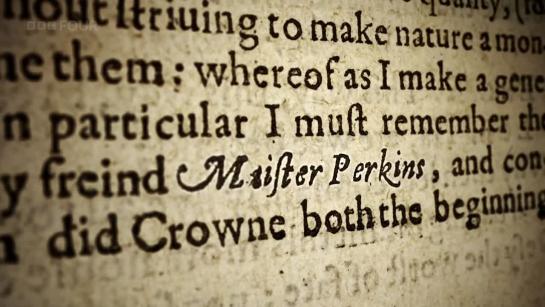 BBC FOUR
hout ſtriuing to make nature a mon
ne them : whereof as I make a gene
n particular I muſt remember the
y freind Maiſter Perkins, and con
n did Crowne both the beginning